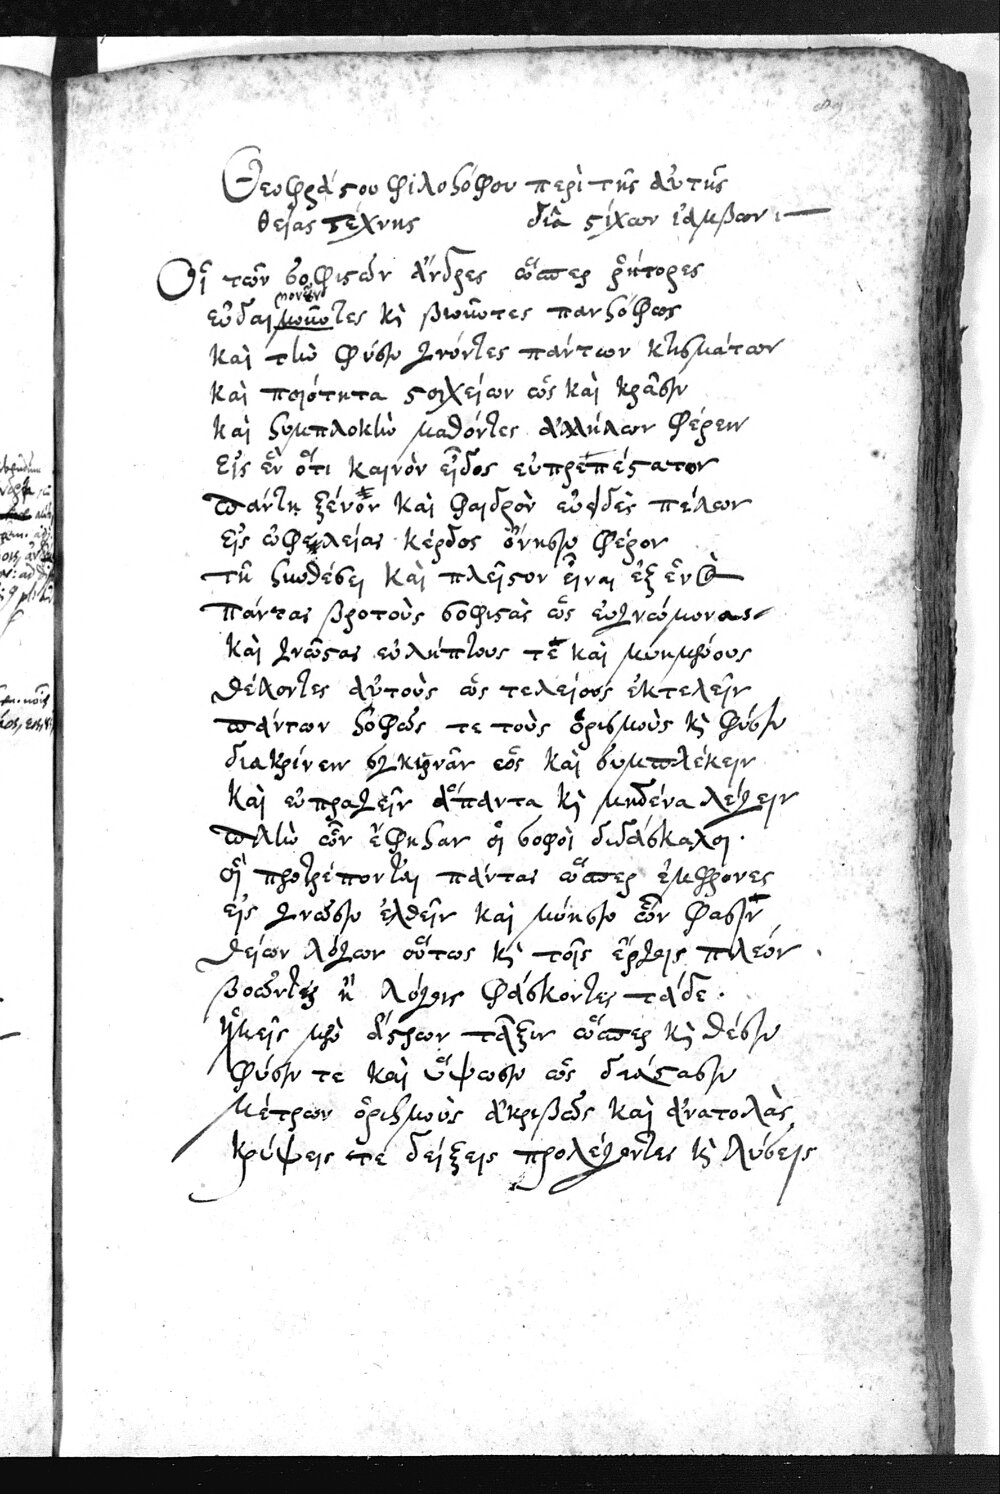 Θεοφράστου φιλοσόφου περὶ τῆς αὐτῆς
θείας τέχνης διὰ στίχων ἰάμβων
Οἱ τῶν σοφιστῶν ἄνδρες ὥσπερ ῥήτορες
μονοῦν
εὐδαιμοῦντες κὶ βιοῦντες πανσόφως
καὶ τὴν φύσιν γνόντες πάντων κτισμάτων
καὶ ποιότητα στοιχείων ὡς καὶ κρᾶσιν
καὶ συμπλοκὴν μαθόντες ἀλλήλων φέρειν
εἰς ἓν ὅτι καινὸν εἶδος εὐπρεπέστατον
πάντη ξένον καὶ φαιδρὸν εὐειδὲς πέλων
εἰς ὠφελείας κέρδος ὄνησιν φέρον
τῇ συνθέσει καὶ πλεῖστον εἶναι ἐξ ἑνὸς
πάντας βροτοὺς σοφιστὰς ὡς εὐγνώμονας
καὶ γνώστας εὐλήπτους τε καὶ μυημένους
θέλοντες αὐτοὺς ὡς τελείους ἐκτελεῖν
πάντων σοφῶς τε τοὺς ὁρισμοὺς κὶ φύσιν
διακρίνειν συγκιρνᾶν ὡς καὶ συμπλέκειν
καὶ εὐπραγεῖν ἅπαντα κὶ μηδένα λέγειν
πλὴν ὧν ἔφησαν οἱ σοφοὶ διδάσκαλοι·
οἳ προτρέπονται πάντας ὥσπερ ἔμφρονες
εἰς γνῶσιν ἐλθεῖν καὶ μύησιν ὧν φασὶν
θείων λόγων οὕτως κὶ τοῖς ἔργοις πλέον
βοῶντες ἢ λόγοις φάσκοντες τάδε·
ἡμεῖς μὲν ἄστρων τάξιν ὥσπερ κὶ θέσιν
φύσιν τε καὶ ὕψωσιν ὡς διάστασιν
μέτρων ὁρισμοὺς ἀκριβῶς καὶ ἀνατολὰς
κρύψεις τε δείξεις προλέγοντες κὶ λύσεις